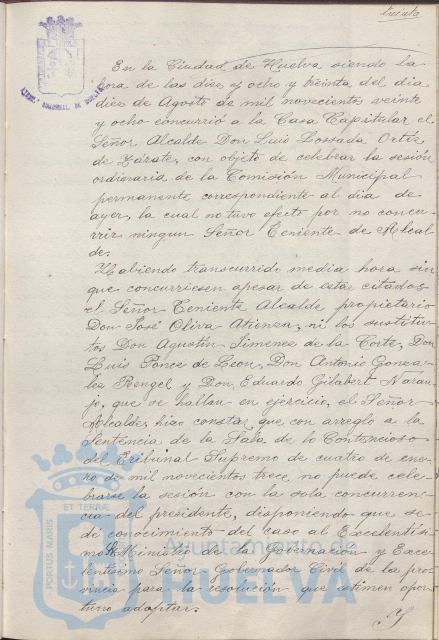 treinta
En la Ciudad de Huelva siendo la
hora de las diez y ocho y treinta del dia
diez de Agosto de mil novecientos veinte
y ocho concurrió a la Casa Capitular el
Señor Alcalde Don Luis Lossada Ortiz
de Zárate, con objeto de celebrar la sesión
ordinaria de la Comisión Municipal
permanente correspondiente al dia de
ayer, la cual no tuvo efecto por no concu-
rrir ningun Señor Teniente de Alcal
de.
Habiendo transcurrido media hora sin
que concurriesen apesar de estar citados
el Señor Teniente Alcalde propietario
Don José Oliva Atienza, ni los sustitu-
tos Don Agustin Jimenez de la Corte, Don
Luis Ponce de Leon, Don Antonio Gonza-
lez Rengel y Don Eduardo Gilabert Naran-
jo, que se hallan en ejercicio, el Señor
Alcalde, hizo constar que con arreglo a la
Sentencia de la Sala de lo Contencioso
del Tribunal Supremo de cuatro de ene-
ro de mil novecientos trece, no puede cele-
brarse la sesión con la sola concurren-
cia del presidente, disponiendo que se
dé conocimiento del caso al Excelentisi-
mo Ministro de la Gobernación y Exce-
lentisimo Señor Gobernador Civil de la pro-
vincia para la resolución que estimen opor-
tuno adoptar.
PORTUS MARIS ET TERRAE
Ayuntamiento
HUELVA